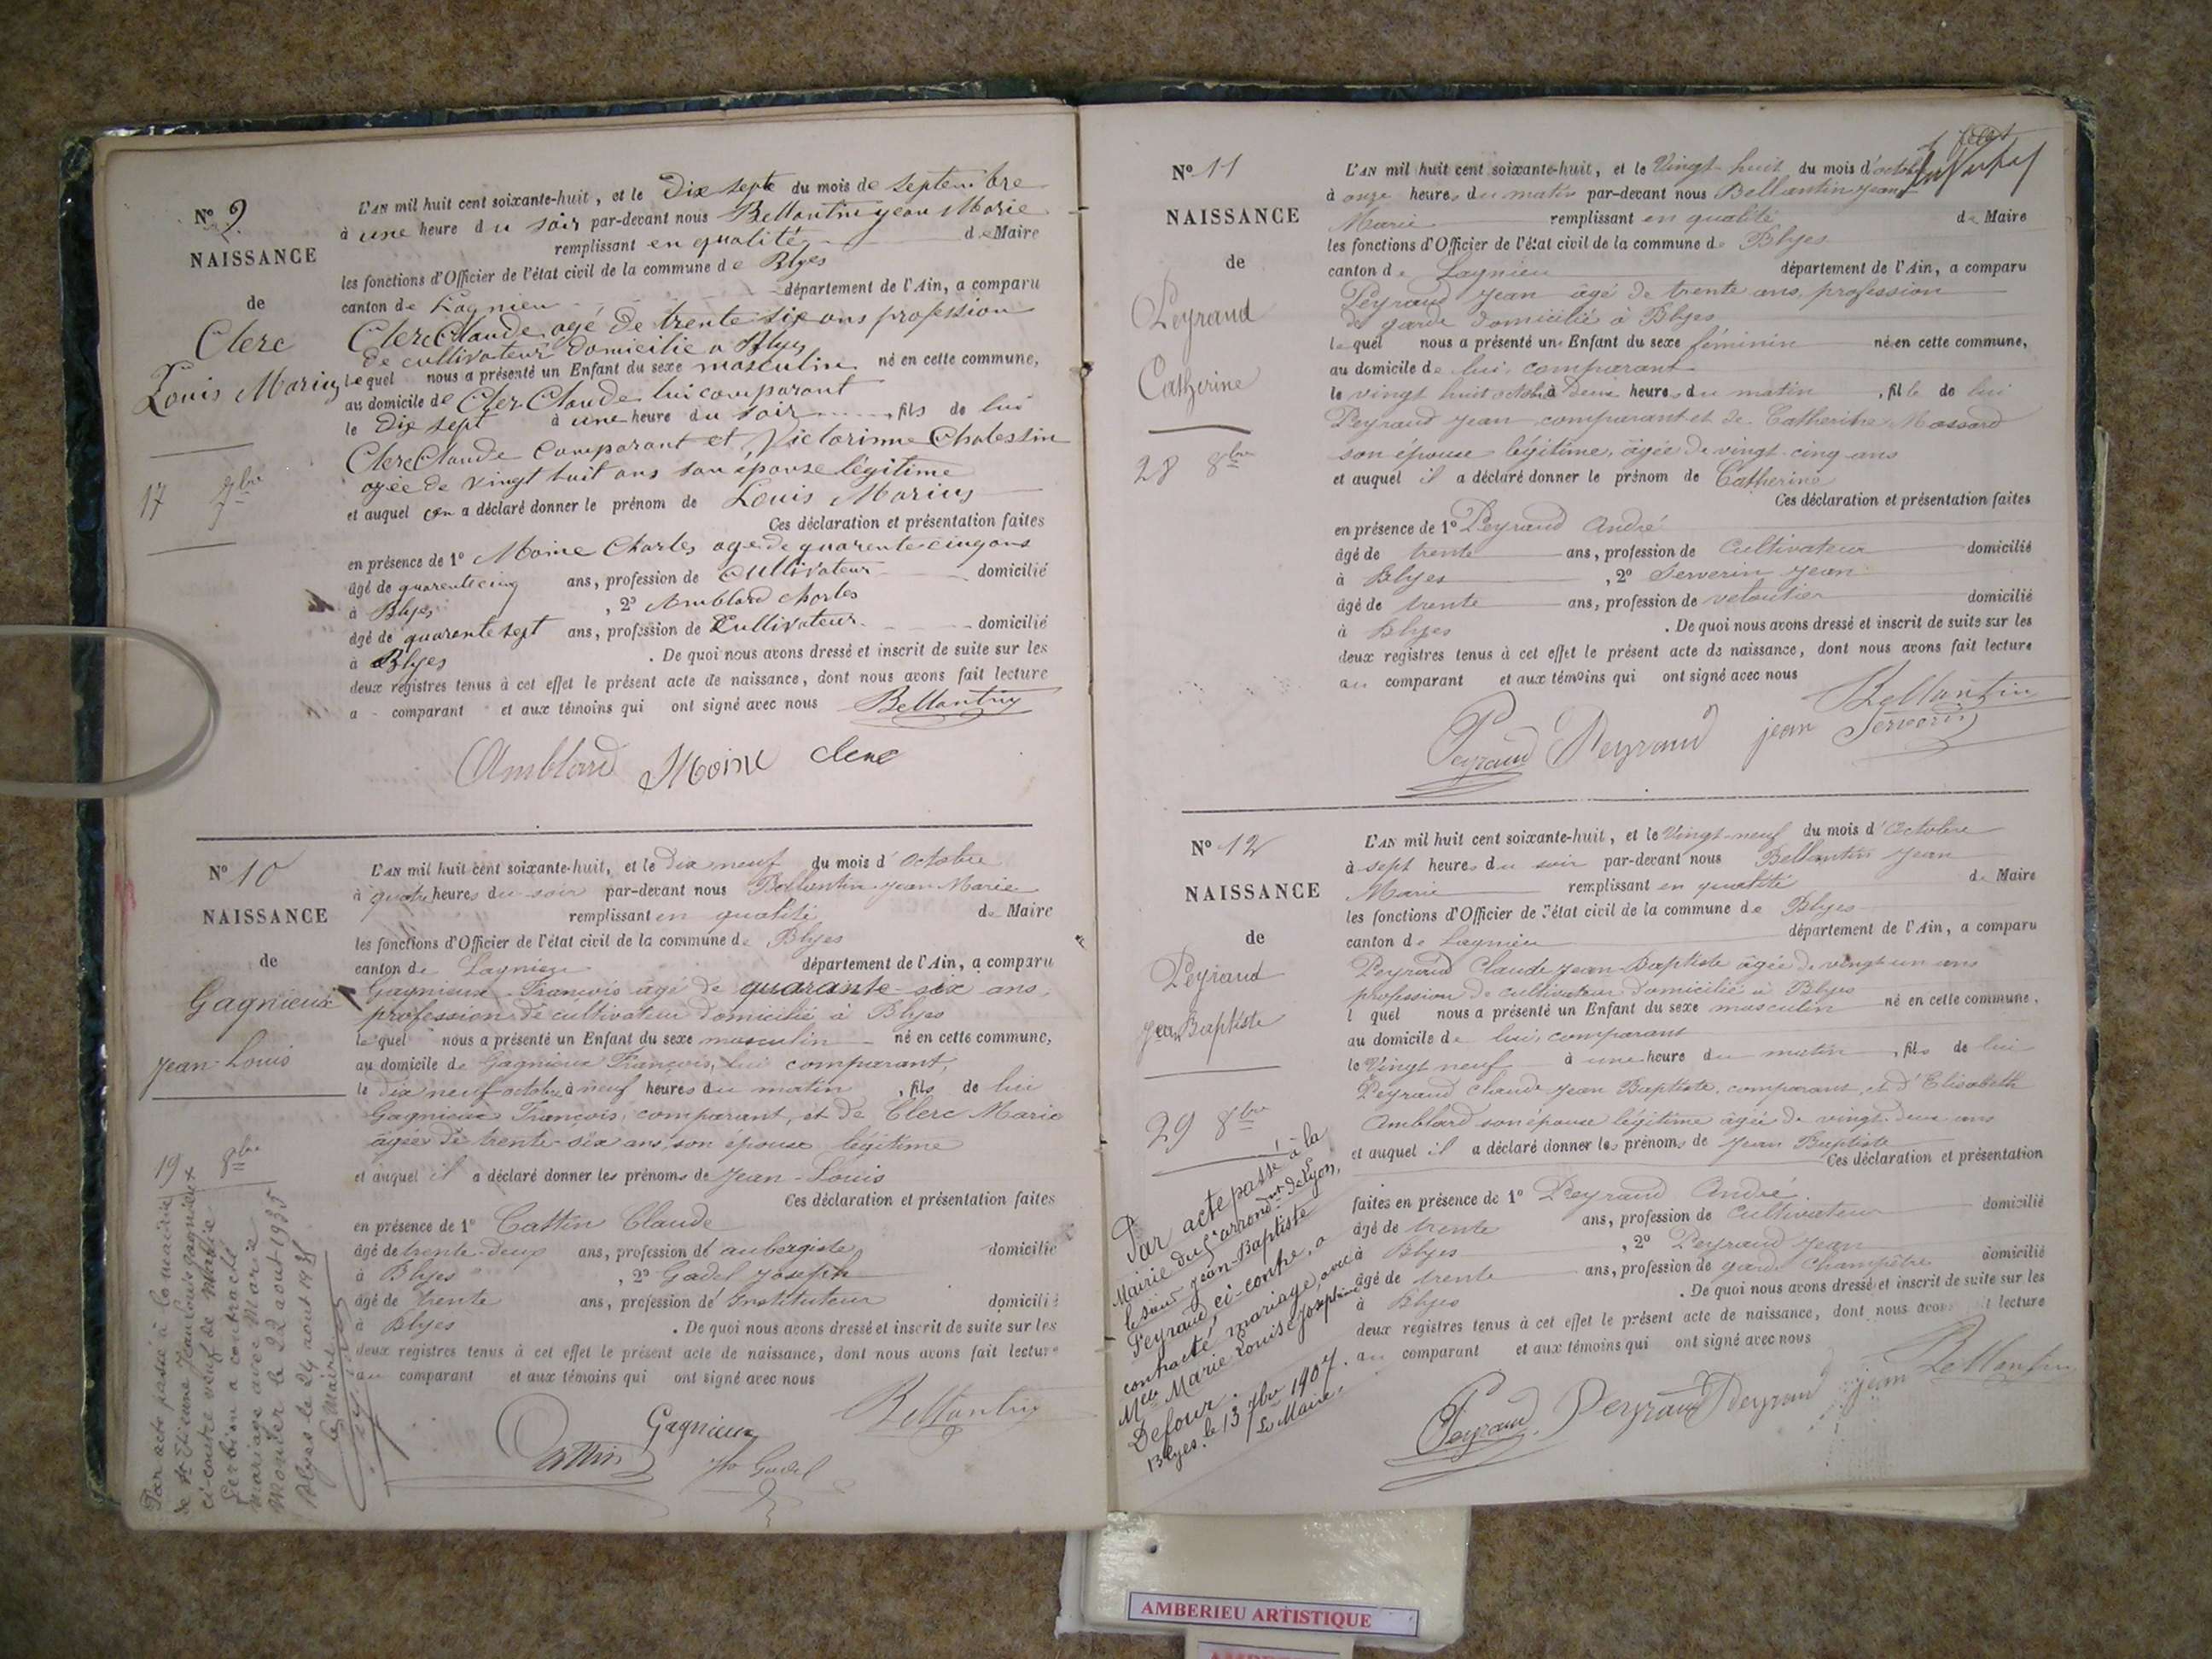 N° 9
NAISSANCE
de
Clerc
Louis Marius
17 7bre
L'AN mil huit cent soixante-huit, et le Dix septe du mois de septembre
à une heure du soir par-devant nous Bellantin jean Marie
remplissant en qualité de Maire
les fonctions d'Officier de l'état civil de la commune de Blyes
canton de Lagnieu département de l'Ain, a comparu
Clerc Claude agé de trente six ans profession
de cultivateur domicilié a Blyes
lequel nous a présenté un Enfant du sexe masculin né en cette commune,
au domicile de Clerc Claude lui comparant
le Dix sept à une heure du soir, fils de lui
Clerc Claude comparant et Victorinne
agée de vingt huit ans son épouse légitime
et auquel on a déclaré donner le prénom de Louis Marius
Ces déclaration et présentation faites
en présence de 1° Moine Charles age de quarente cinq ans
âgé de quarente cinq ans, profession de Cultivateur domicilié
à Blyes, 2° Amblard charles
âgé de quarente sept ans, profession de Cultivateur domicilié
à Blyes. De quoi nous avons dressé et inscrit de suite sur les
deux registres tenus à cet effet le présent acte de naissance, dont nous avons fait lecture
a comparant et aux témoins qui ont signé avec nous Bellantin
Amblard Moine clerc
N° 10
NAISSANCE
de
Gagnieux
jean Louis
19 8bre
L'AN mil huit cent soixante-huit, et le Dix neuf du mois d'octobre
à quatre heures du soir par-devant nous Bellantin jean Marie
remplissant en qualité de Maire
les fonctions d'Officier de l'état civil de la commune de Blyes
canton de Lagnieu département de l'Ain, a comparu
Gagnieux François âgé de quarante-six ans,
profession de cultivateur domicilié à Blyes
lequel nous a présenté un Enfant du sexe masculin né en cette commune,
au domicile de Gagnieux François, lui comparant,
le dix neuf octobre à neuf heures du matin, fils de lui
Gagnieux François, comparant, et de Clerc Marie
âgée de trente-six ans, son epouse légitime
et auquel il a déclaré donner les prénoms de jean-Louis
Ces déclaration et présentation faites
en présence de 1° Cattin Claude
âgé de trente-deux ans, profession de aubergiste domicilié
à Blyes, 2° Gadel joseph
âgé de trente ans, profession de Instituteur domicilié
à Blyes. De quoi nous avons dressé et inscrit de suite sur les
deux registres tenus à cet effet le présent acte de naissance, dont nous avons fait lecture
au comparant et aux témoins qui ont signé avec nous
Bellantin
Gagnieux
Cattin Gadel
Par acte passé à la mairie
de St Etienne Jean Louis Gagnieux
ci-contre veuf de Marie
Gerbion a contracté
mariage avec Marie
Monder le 22 aout 1935
Blyes le 24 aout 1935
le Maire
N° 11
NAISSANCE
de
Peyraud
Catherine
28 8bre
L'AN mil huit cent soixante-huit, et le Vingt-huit du mois d'octobre
à onze heures du matin par-devant nous Bellantin jean
Marie remplissant en qualité de Maire
les fonctions d'Officier de l'état civil de la commune de Blyes
canton de Lagnieu département de l'Ain, a comparu
Peyraud jean âgé de trente ans, profession
de garde domicilié à Blyes
lequel nous a présenté un Enfant du sexe féminin né en cette commune,
au domicile de lui, comparant
le vingt huit octobre à deux heures du matin, fille de lui
Peyraud jean comparant et de Catherine Massard
son épouse légitime, âgée de vingt-cinq ans
et auquel il a déclaré donner le prénom de Catherine
Ces déclaration et présentation faites
en présence de 1° Peyraud André
âgé de trente ans, profession de Cultivateur domicilié
à Blyes, 2° Serverin jean
âgé de trente ans, profession de veloutier domicilié
à Blyes. De quoi nous avons dressé et inscrit de suite sur les
deux registres tenus à cet effet le présent acte de naissance, dont nous avons fait lecture
au comparant et aux témoins qui ont signé avec nous
Bellantin
Peyraud Peyraud jean Serverin
N° 12
NAISSANCE
de
Peyraud
jean Baptiste
29 8bre
L'AN mil huit cent soixante-huit, et le Vingt-neuf du mois d'Octobre
à sept heures du soir par-devant nous Bellantin jean
Marie remplissant en qualité de Maire
les fonctions d'Officier de l'état civil de la commune de Blyes
canton de Lagnieu département de l'Ain, a comparu
Peyraud Claude jean-Baptiste âgée de vingt-un ans
profession de cultivateur domicilié à Blyes
l quel nous a présenté un Enfant du sexe masculin né en cette commune,
au domicile de lui, comparant
le Vingt neuf à une heure du matin, fils de lui
Peyraud Claude jean Baptiste, comparant, et d'Elisabeth
Amblard son épouse légitime âgée de vingt-deux ans
et auquel il a déclaré donner les prénoms de jean Baptiste
Ces déclaration et présentation
faites en présence de 1° Peyraud André
âgé de trente ans, profession de Cultivateur domicilié
à Blyes, 2° Peyraud jean
âgé de trente ans, profession de garde champêtre domicilié
à Blyes. De quoi nous avons dressé et inscrit de suite sur les
deux registres tenus à cet effet le présent acte de naissance, dont nous avons fait lecture
au comparant et aux témoins qui ont signé avec nous
Bellantin
Peyraud Peyraud Peyraud jean
Par acte passé à la
Mairie du arrondnt de Lyon,
le sieur Jean-Baptiste
Peyraud, ci-contre, a
contracté mariage, avec
Melle Marie Louise Joséphine
Defour.
Blyes, le 13 1907.
Le Maire,
AMBERIEU ARTISTIQUE